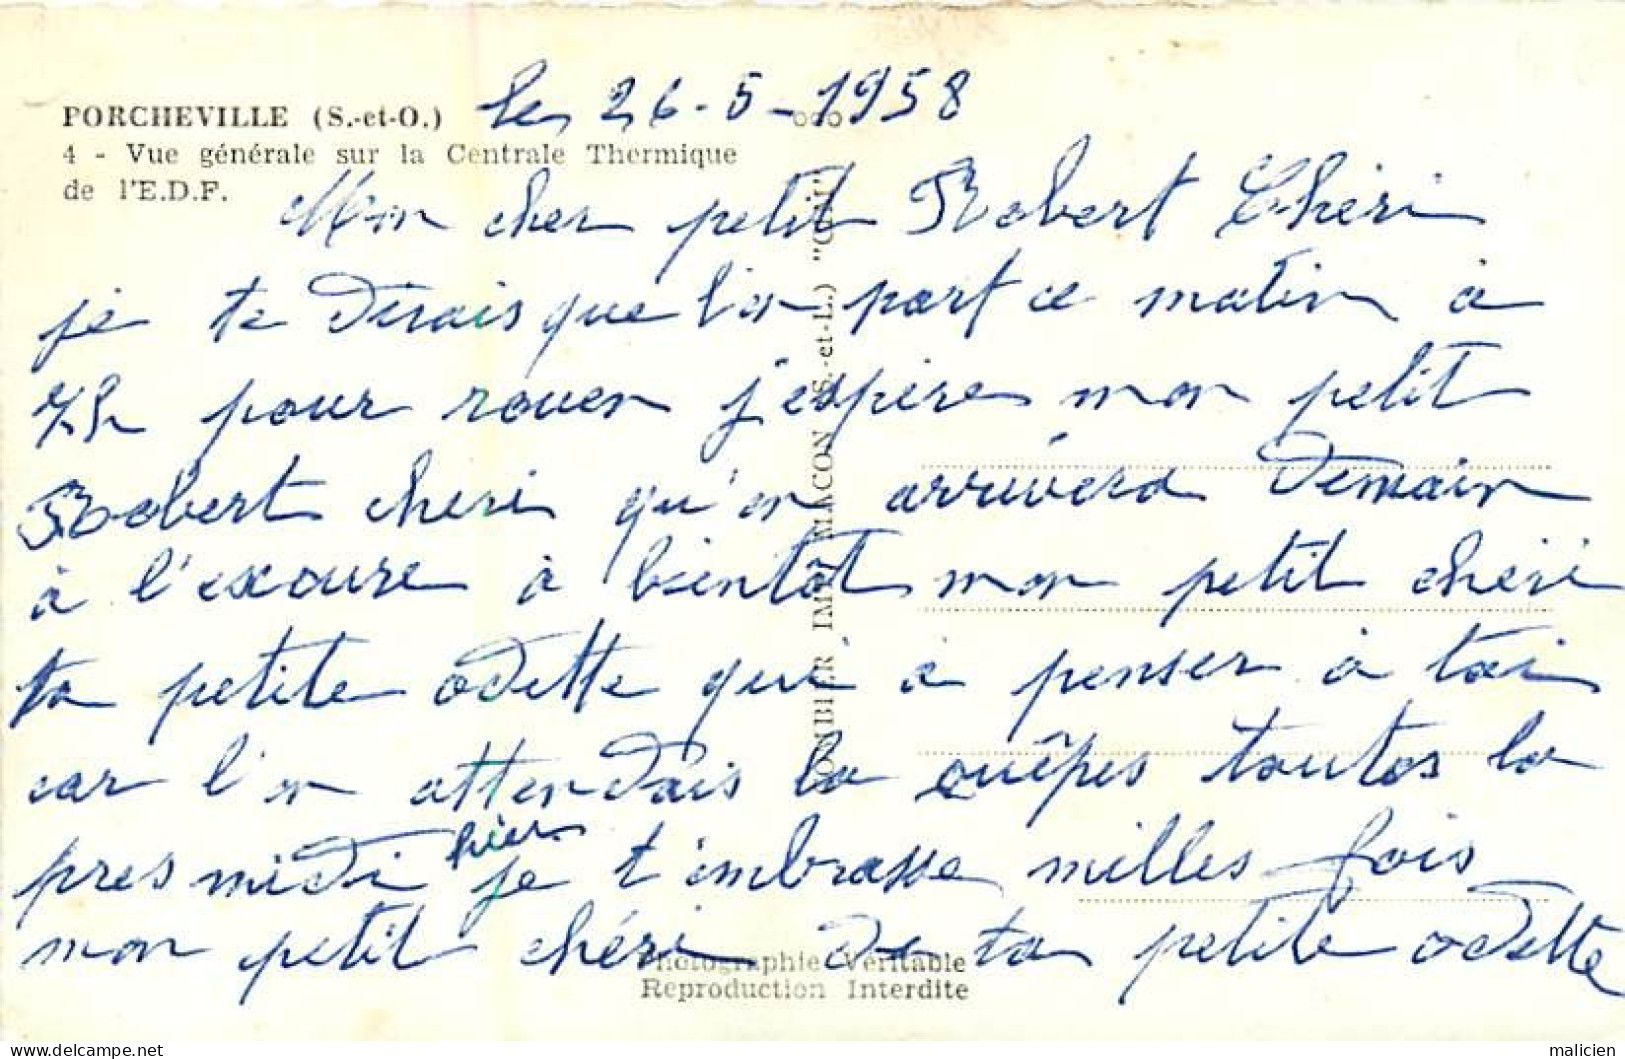 PORCHEVILLE (S.-et-O.)
le 26-5-1958
4 - Vue générale sur la Centrale Thermique
de l'E.D.F.
Mon cher petit Robert Chéri
je te dirais que l'on part ce matin à
7h pour rouen j'espère mon petit
Robert cheri qu'on arrivera demain
à l'excure à bientôt mon petit chéri
ta petite odette qui à penser à toi
car l'on attendais la ouêpes toutes la
pres midi hier je t'embrasse milles fois
mon petit chéri de ta petite odette
COMBIER IMP. MACON (S.-et-L.) "CIM"
Photographie Véritable
Reproduction Interdite
www.delcampe.net
malicien